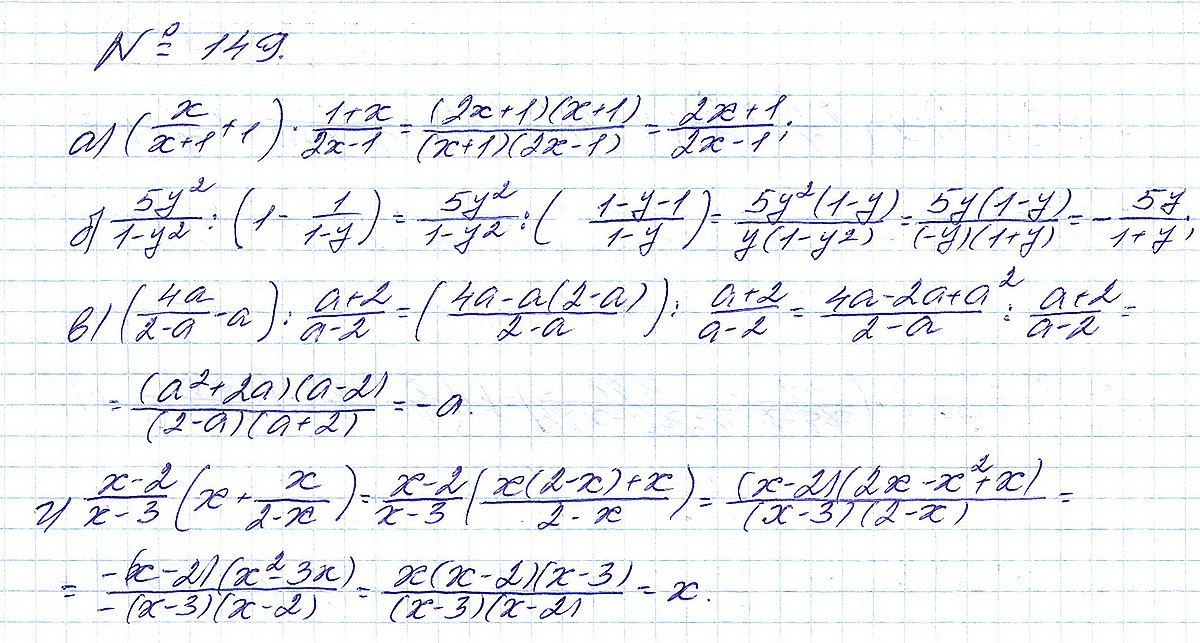 № 149.
а) (x/(x+1) + 1) · (1+x)/(2x-1) = ((2x+1)(x+1))/((x+1)(2x-1)) = (2x+1)/(2x-1);
б) 5y²/(1-y²) : (1 - 1/(1-y)) = 5y²/(1-y²) : ((1-y-1)/(1-y)) = (5y²(1-y))/(y(1-y²)) = (5y(1-y))/((-y)(1+y)) = - 5y/(1+y);
в) (4a/(2-a) - a) : (a+2)/(a-2) = ((4a-a(2-a))/(2-a)) : (a+2)/(a-2) = (4a-2a+a²)/(2-a) : (a+2)/(a-2) =
= ((a²+2a)(a-2))/((2-a)(a+2)) = -a.
г) (x-2)/(x-3) (x + x/(2-x)) = (x-2)/(x-3) ((x(2-x)+x)/(2-x)) = ((x-2)(2x-x²+x))/((x-3)(2-x)) =
= (-(x-2)(x²-3x))/(-(x-3)(x-2)) = (x(x-2)(x-3))/((x-3)(x-2)) = x.